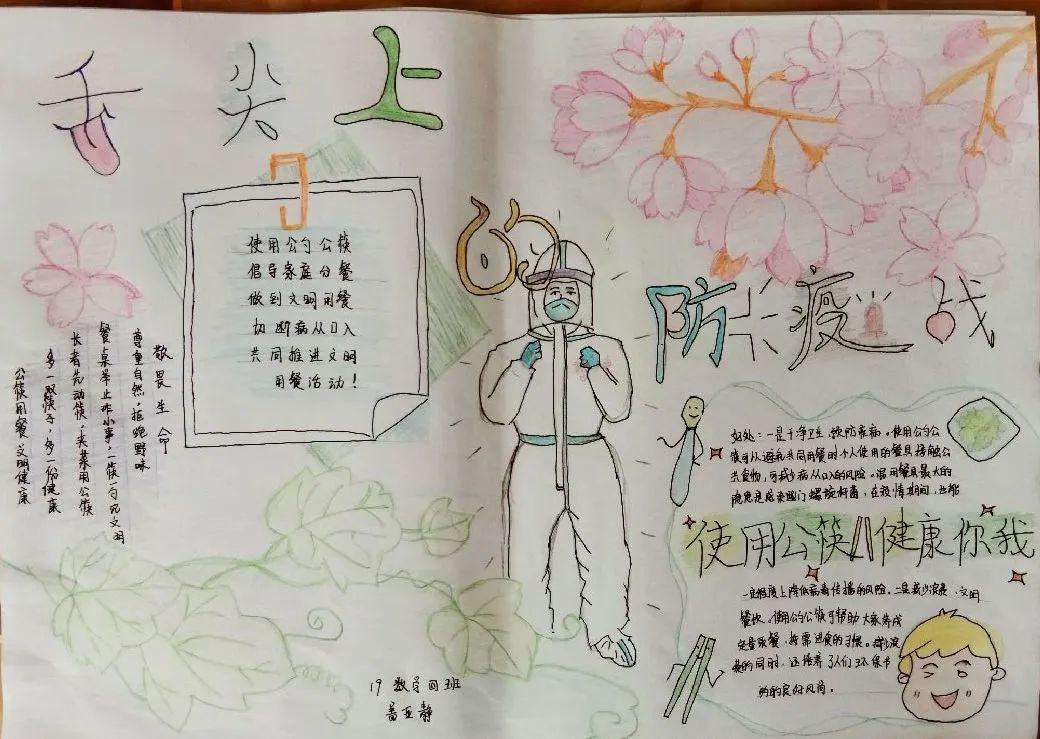 舌尖上的防疫战
使用公勺公筷
倡导家庭分餐
做到文明用餐
切断病从口入
共同推进文明
用餐活动！
敬畏生命
尊重自然，拒绝野味
餐桌举止非小事，一筷一勺见文明
长者先动筷，夹菜用公筷
多一双筷子，多一份健康
公筷用餐文明健康
好处：一是干净卫生，预防疾病。使用公勺公
筷可以避免共同用餐时个人使用的餐具接触公
共食物，可减少病从口入的风险。混用餐具最大的
隐患是感染幽门螺旋杆菌，在疫情期间，也能
使用公筷 健康你我
一定程度上降低病毒传播的风险。二是减少浪费，文明
餐饮。使用公勺公筷可帮助大家养成
定量取餐、按需进食的习惯。减少浪
费的同时，还培养了人们环保节
约的良好风尚。
19数学四班